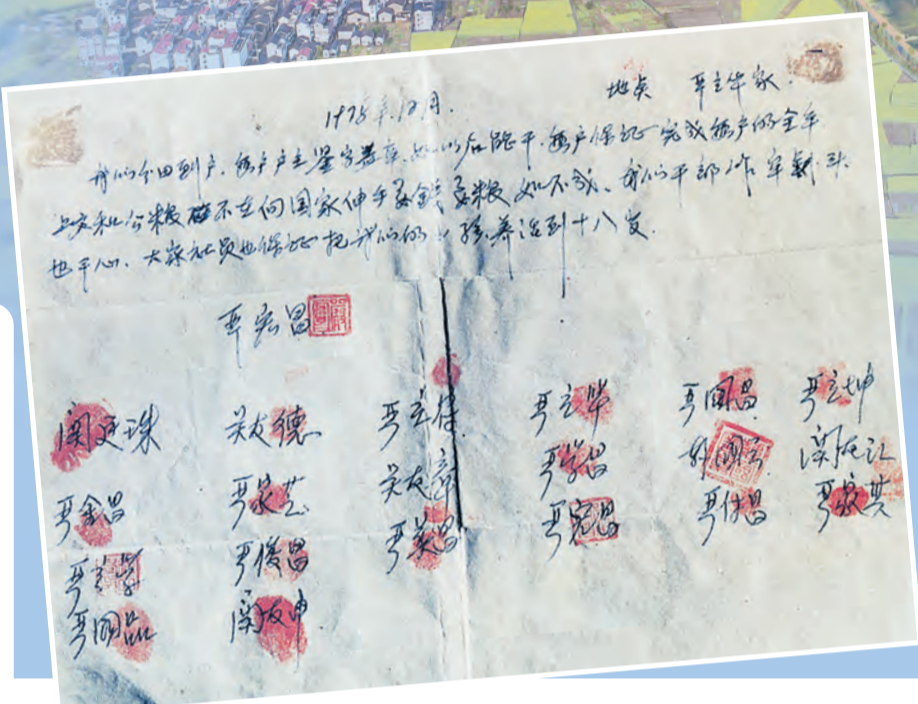 1978年12月. 地点 严立华家.
我们分田到户,每户户主签字盖章,如以后能干,每户保证完成每户的全年
上交和公粮 不在向国家伸手要钱要粮 如不成,我们干部作牢剎头
也干心,大家社员也保证把我们的小孩养活到十八岁.
严宏昌
関廷珠 关友德 严立符 严立华 严国昌 严立坤
严金昌 严家芝 关友章 严学昌 韩国云 関友江
严立学 严俊昌 严美昌 严宏昌 严付昌 严家其
严国品 関友申